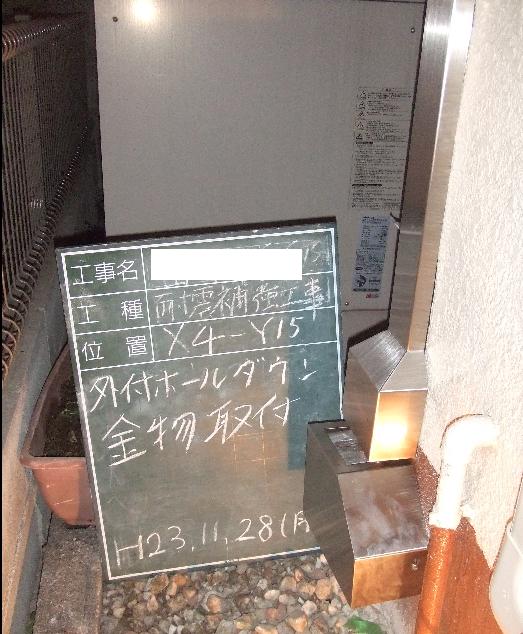 工事名
工種 耐震補強工事
位置 X4-Y15
外付ホールダウン
金物取付
H23.11.28(月